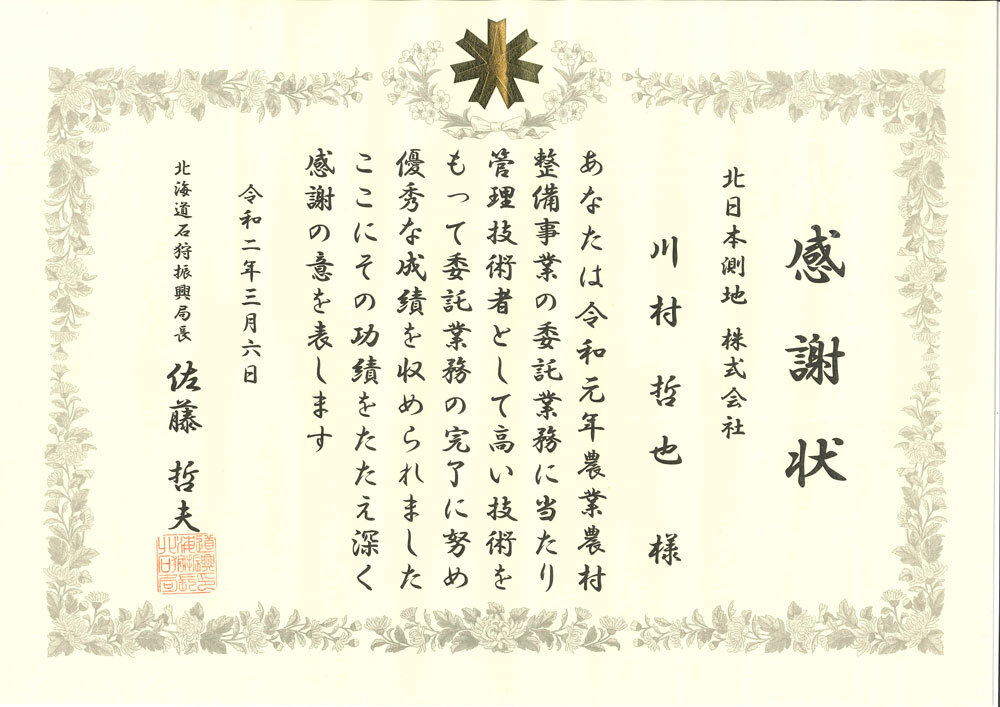 感謝状
北日本測地 株式会社
川村哲也 様
あなたは令和元年農業農村
整備事業の委託業務に当たり
管理技術者として高い技術を
もって委託業務の完了に努め
優秀な成績を収められました
ここにその功績をたたえ深く
感謝の意を表します
令和二年三月六日
北海道石狩振興局長 佐藤 哲夫